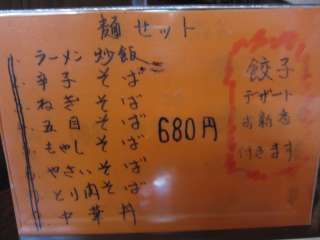 麺セット
ラーメン 炒飯
辛子 そば
ねぎ そば
五目 そば
もやし そば
やさい そば
とり肉 そば
中華丼
680円
餃子
デザート
お新香
付きます